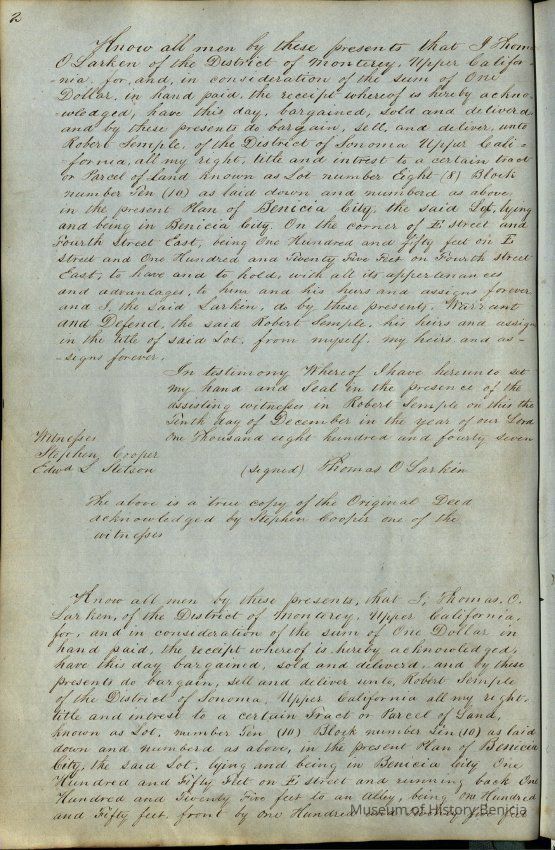 2
Know all men by these presents that I Thoms
O Larken of the District of Monterey, Upper Califor-
-nia. for, and, in consideration of the sum of One
Dollar, in hand paid, the receipt whereof is hereby ackno-
-wledged, have this day, bargained, sold and deliverd,
and by these presents do bargain, sell, and deliver, unto
Robert Semple, of the District of Sonoma Upper Cali-
-fornia, all my right, title and intrest to a certain tract
or Parcel of Land known as Lot number Eight (8) Block
number Ten (10) as laid down and numberd as above,
in the present Plan of Benicia City, the said Lot, lying
and being in Benicia City. On the corner of E street and
Fourth Street East, being One Hundred and fifty feet on E
street and One Hundred and Twenty Five Feet on Fourth street
East, to have and to hold, with all its appertenances
and advantages, to him and his heirs and assigns forever
and I, the said Larkin, do by these presents, Warrant
and Defend, the said Robert Semple, his heirs and assigns
in the title of said Lot, from myself, my heirs and as-
-signs forever.
In testimony Whereof I have hereunto set
my hand and Seal in the presence of the
assisting witnesses in Robert Semple on this the
Tenth day of December in the year of our Lord
One Thousand eight hundred and fourty seven
Witnesses
Stephen Cooper
Edwd L Stetson
(signed) Thomas O Larkin
The above is a true copy of the Original Deed
acknowledged by Stephen Cooper one of the
witnesses
Know all men by these presents, that I, Thomas. O.
Larken, of the District of Monterey, Upper California,
for, and in consideration of the sum of One Dollar in
hand paid, the receipt whereof is hereby acknowledged,
have this day bargained, sold and deliverd, and by these
presents do bargain, sell and deliver unto, Robert Semple
of the District of Sonoma, Upper California all my right,
title and intrest to a certain Tract or Parcel of Land,
known as Lot, number Ten (10) Block number Ten (10) as laid
down and numberd as above, in the present Plan of Benicia
City, the said Lot, lying and being in Benicia City One
Hundred and Fifty Feet on E street and running back One
Hundred and Twenty Five feet to an Alley, being One Hundred
and Fifty feet front by one Hundred and Twenty five feet
Museum of History Benicia